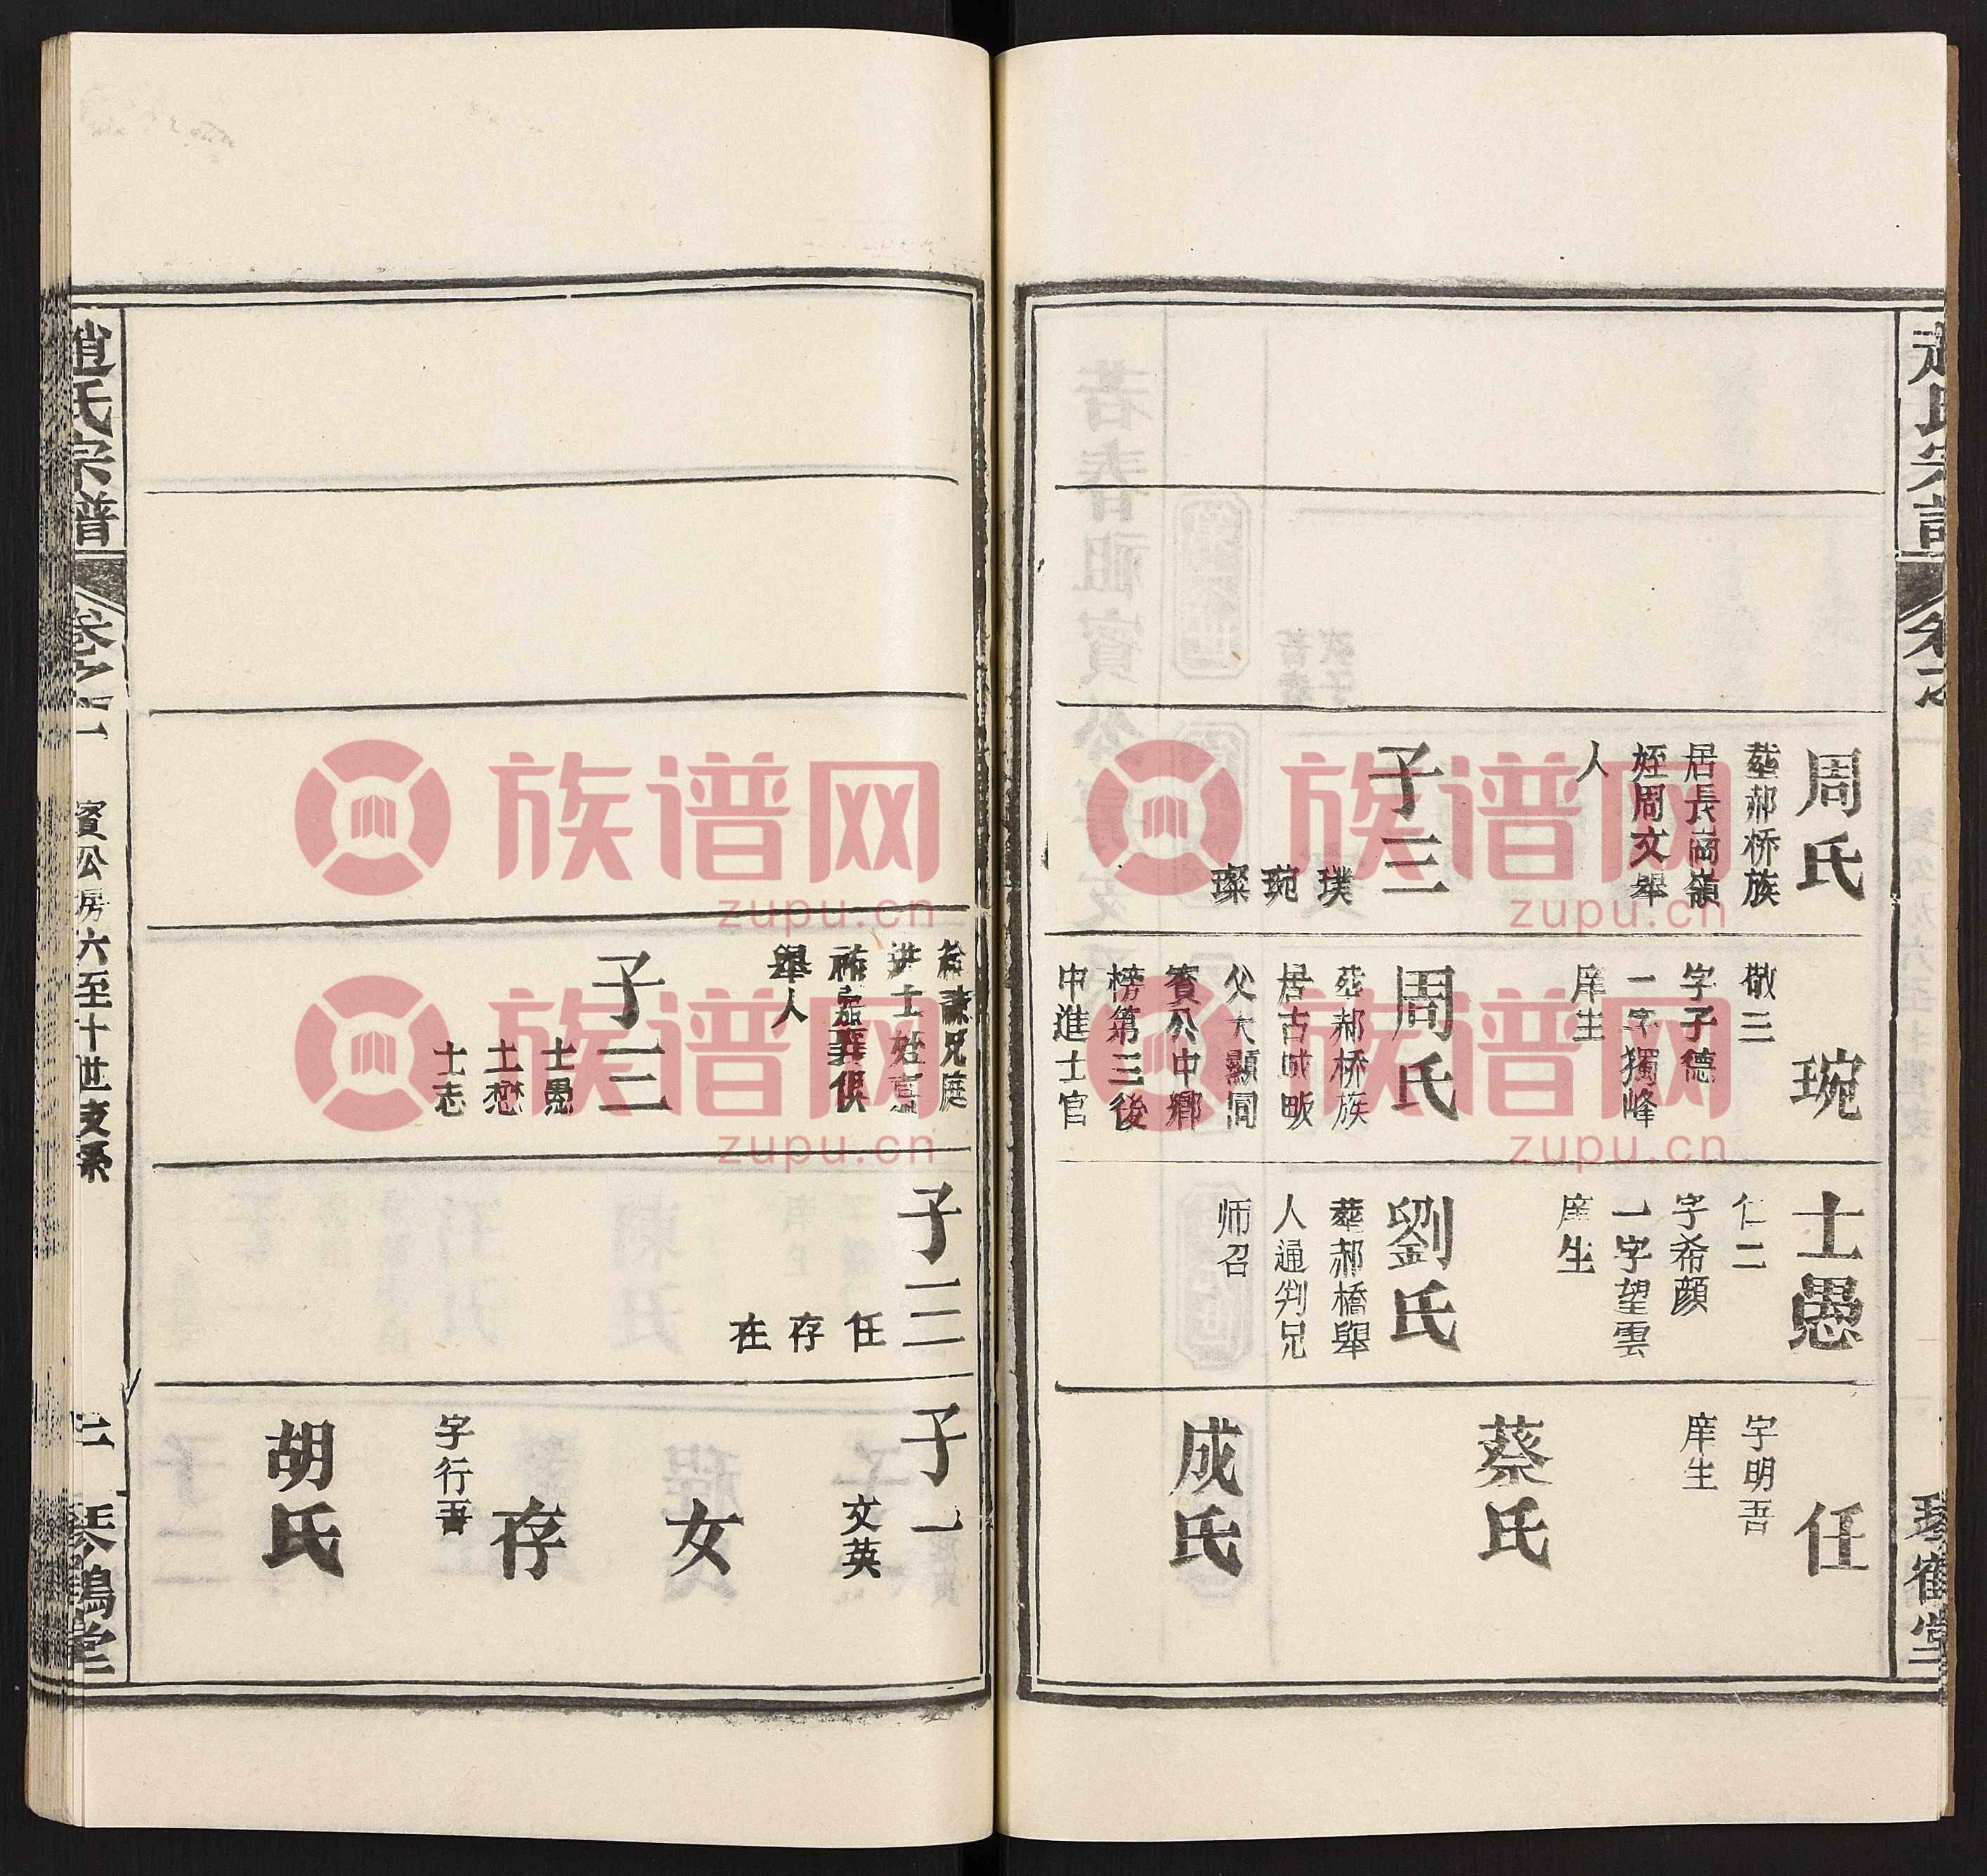 周氏
塟郝桥族
居長崗嶺
姪周文舉
人
子三
璞
琬
璨
琬
敬三
字子德
一字獨峰
庠生
周氏
塟郝桥族
居古城畈
父大顯同
賓公中鄉
榜第三後
中進士官
士愚
仁二
字希顔
一字望雲
庠生
劉氏
葬郝橋舉
人通判兄
师召
任
字明吾
庠生
蔡氏
成氏
兄庭
進士姪
舉人
子三
士愚
士懋
士志
子三
任
存
在
子一
文英
女
存
字行吾
胡氏
趙氏宗譜
卷之
賓公房六至十世支系
二
琴鶴堂
族谱网
zupu.cn
族谱网
zupu.cn
族谱网
zupu.cn
族谱网
zupu.cn